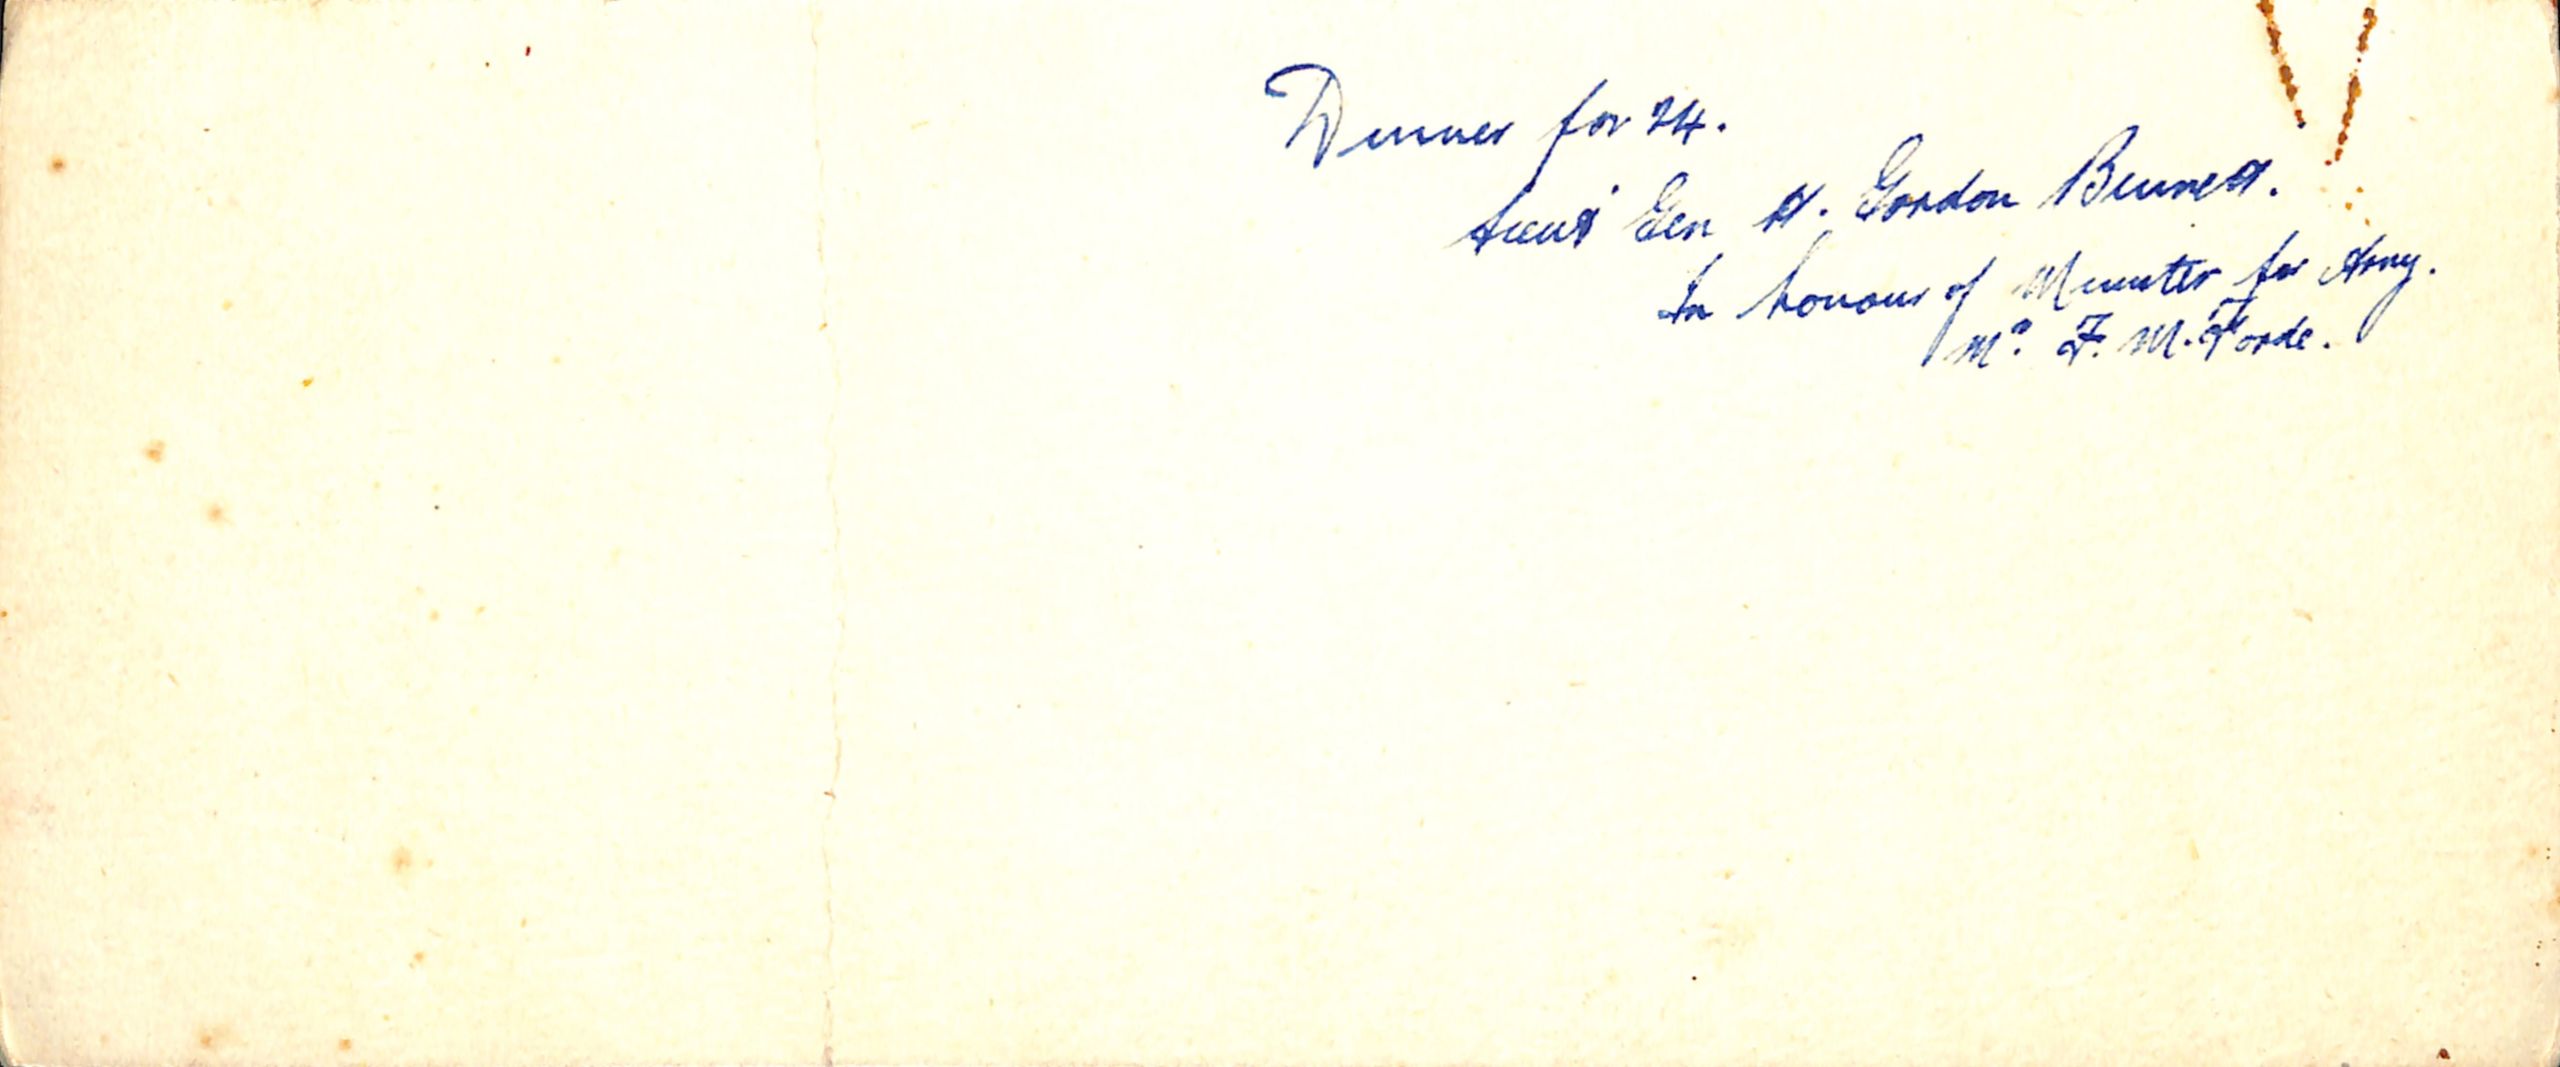 Dinner for 24.
Lieut Gen H. Gordon Bennett.
In honour of Minister for Army.
Mr. F. M. Forde.